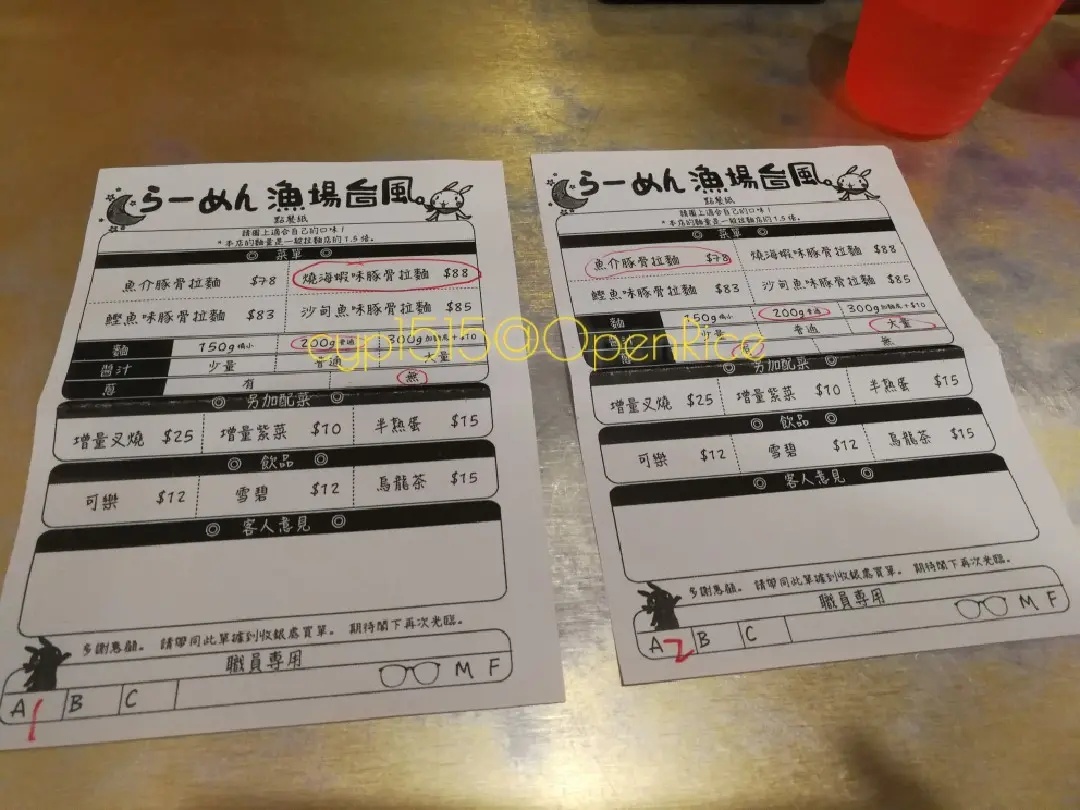 らーめん 漁場台風。
點餐紙
請圈上適合自己的口味！
*本店的麵量是一般拉麵店的1.5倍。
◎ 菜單 ◎
魚介豚骨拉麵 $78 燒海蝦味豚骨拉麵 $88
鰹魚味豚骨拉麵 $83 沙甸魚味豚骨拉麵 $85
麵 150g 細小 200g 普通 300g 加麵底+$10
醬汁 少量 普通 大量
蔥 有 無
◎ 另加配菜 ◎
增量叉燒 $25 增量紫菜 $10 半熟蛋 $15
◎ 飲品 ◎
可樂 $12 雪碧 $12 烏龍茶 $15
◎ 客人意見 ◎
多謝惠顧。 請帶同此單據到收銀處買單。 期待閣下再次光臨。
職員專用
A 1 B C M F
らーめん 漁場台風。
點餐紙
請圈上適合自己的口味！
*本店的麵量是一般拉麵店的1.5倍。
◎ 菜單 ◎
魚介豚骨拉麵 $78 燒海蝦味豚骨拉麵 $88
鰹魚味豚骨拉麵 $83 沙甸魚味豚骨拉麵 $85
麵 150g 細小 200g 普通 300g 加麵底+$10
少量 普通 大量
無
◎ 另加配菜 ◎
增量叉燒 $25 增量紫菜 $10 半熟蛋 $15
◎ 飲品 ◎
可樂 $12 雪碧 $12 烏龍茶 $15
◎ 客人意見 ◎
多謝惠顧。 請帶同此單據到收銀處買單。 期待閣下再次光臨。
職員專用
A 2 B C M F
cyp1515@OpenRice